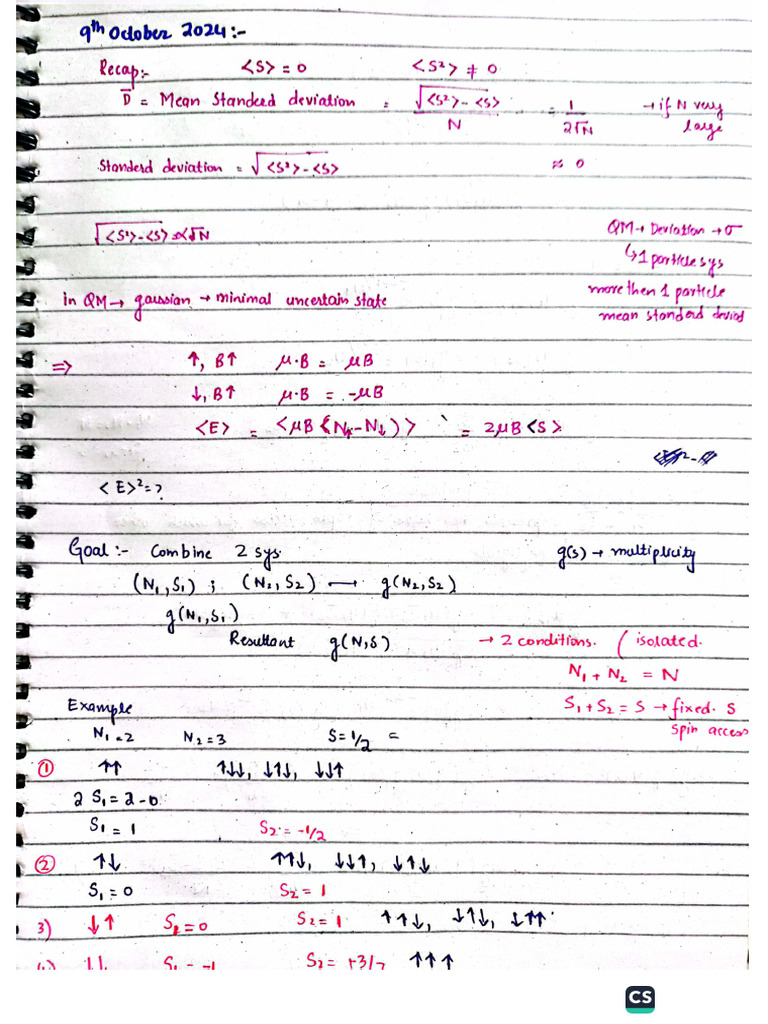 9th October 2024:-
Recap:- <S> = 0 <S²> ≠ 0
D̅ = Mean Standerd deviation = √<S²> - <S> / N = 1 / 2√N → if N very large
Standerd deviation = √<S²> - <S> ≈ 0
√<S²> - <S> ∝ √N
QM → Deviation → σ
↳ 1 particle sys
more then 1 particle
mean standerd deviat
in QM → gaussian → minimal uncertain state
⇒ ↑, B↑ μ·B = μB
↓, B↑ μ·B = -μB
<E> = <μB (N↑-N↓)> = 2μB<S>
<E>² = ?
Goal :- Combine 2 sys. g(s) → multiplicity
(N₁,S₁) ; (N₂,S₂) → g(N₂,S₂)
g(N₁,S₁)
Resultant g(N,S) → 2 conditions. (isolated.
N₁ + N₂ = N
S₁+S₂ = S → fixed. S
Spin access
Example
N₁=2 N₂=3 S=1/2 =
① ↑↑ ↑↓↓, ↓↑↓, ↓↓↑
2 S₁ = 2-0
S₁ = 1 S₂ = -1/2
② ↑↓ ↑↑↓, ↓↓↑, ↓↑↓
S₁ = 0 S₂ = 1
3) ↓↑ S₁=0 S₂=1 ↑↑↓, ↓↑↓, ↓↑↑
↓↓ S₁ = -1 S₂ = +3/2 ↑↑↑
CS